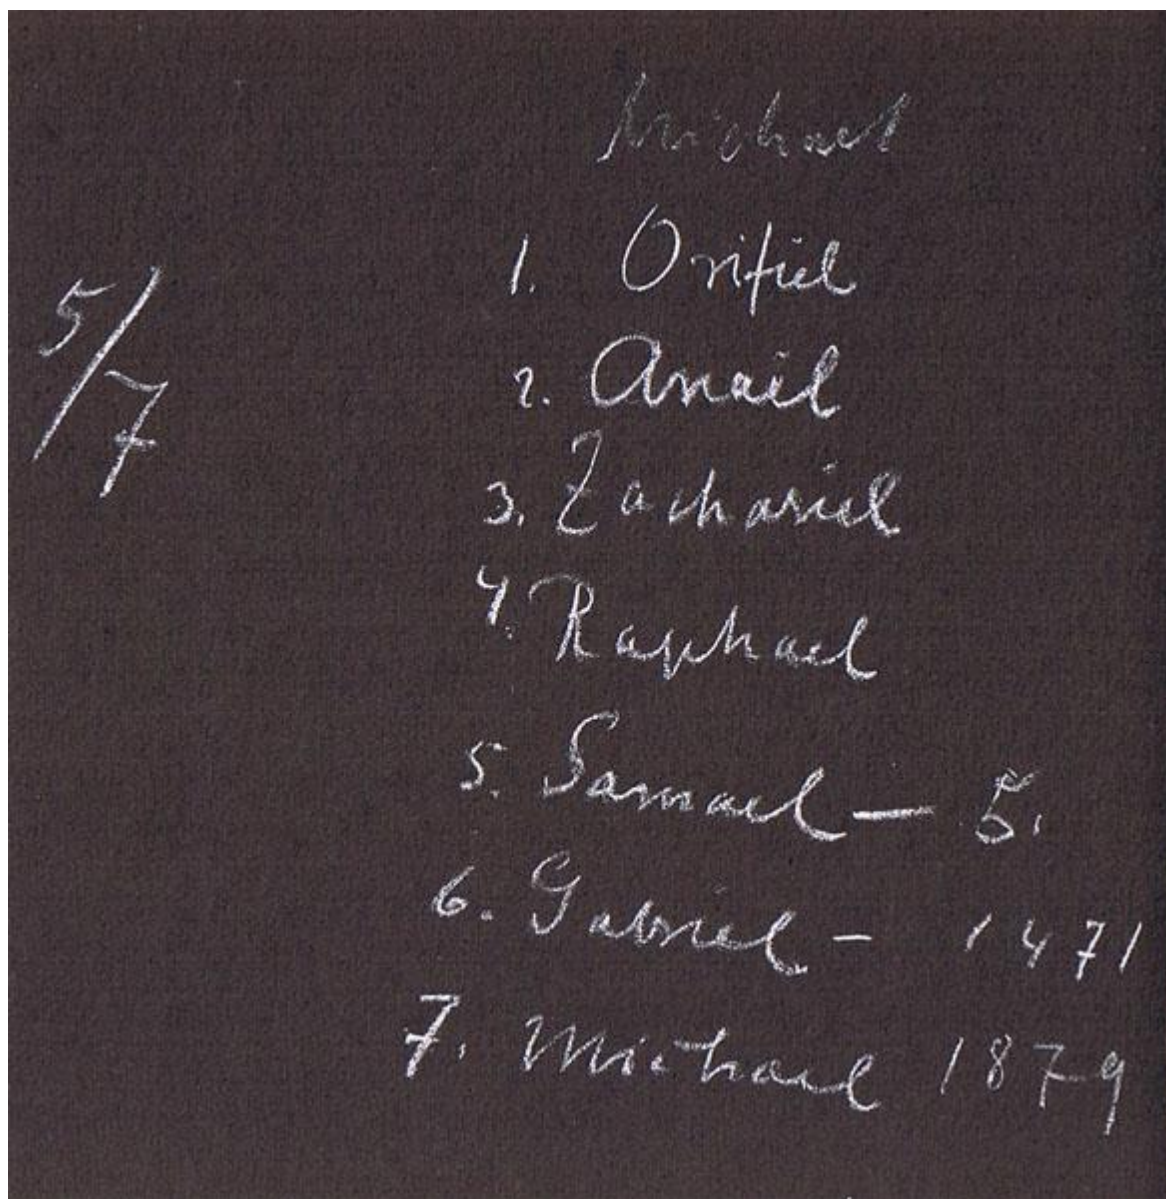 Michael
5/7
1. Orifiel
2. Anael
3. Zachariel
4. Raphael
5. Samael — 5.
6. Gabriel – 1471
7. Michael 1879